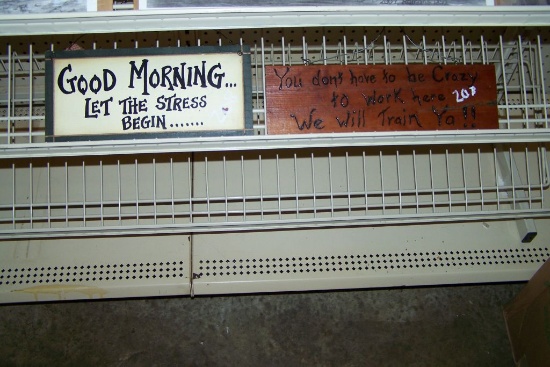 Good Morning...
Let the Stress
Begin.......
You don't have to be Crazy
to work here
We Will Train Yo !!